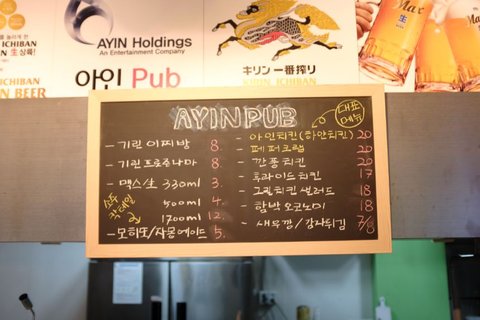 ICHIBAN
生 상륙!
N BEER
AYIN Holdings
An Entertainment Company
아인 Pub
キリン 一番搾り
KIRIN ICHIBAN
Max
生
Max
AYIN PUB
대표
메뉴
- 기린 이찌방 8.
- 기린 프로즌나마 8.
- 맥스/生 330ml 3.
500ml 4.
1700ml 12.
- 모히또/자몽에이드 5.
- 아인치킨(하얀치킨) 20
- 페퍼크랩 20
- 깐풍치킨 20
- 후라이드치킨 17
- 그릴치킨샐러드 18
- 함박오코노미 18
- 새우깡/감자튀김 7/8